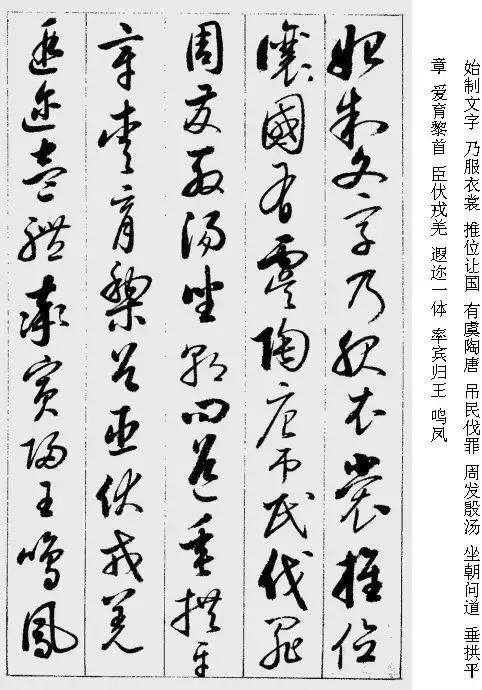 始制文字 乃服衣裳 推位让国 有虞陶唐 吊民伐罪 周发殷汤 坐朝问道 垂拱平
章 爱育黎首 臣伏戎羌 遐迩一体 率宾归王 鸣凤
始制文字乃服衣裳推位
讓國有虞陶唐吊民伐罪
周發殷湯坐朝問道垂拱平
章愛育黎首臣伏戎羌
遐迩壹體率賓歸王鳴鳳